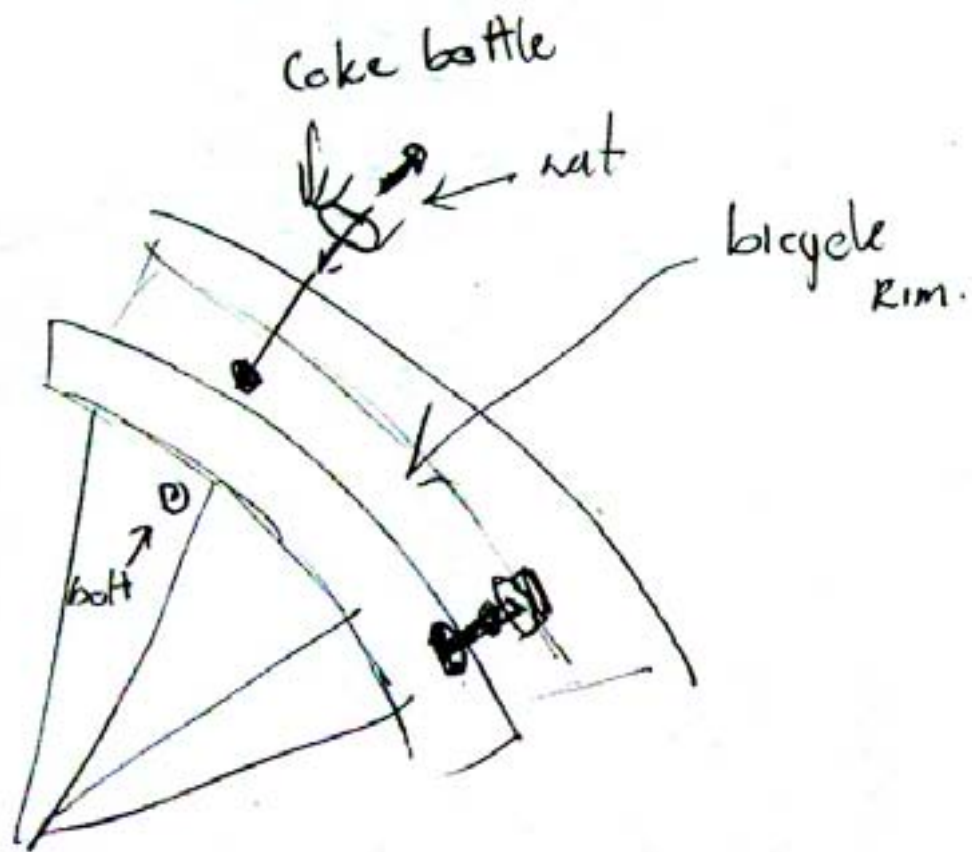 Coke bottle
nut
bicycle
Rim.
bolt